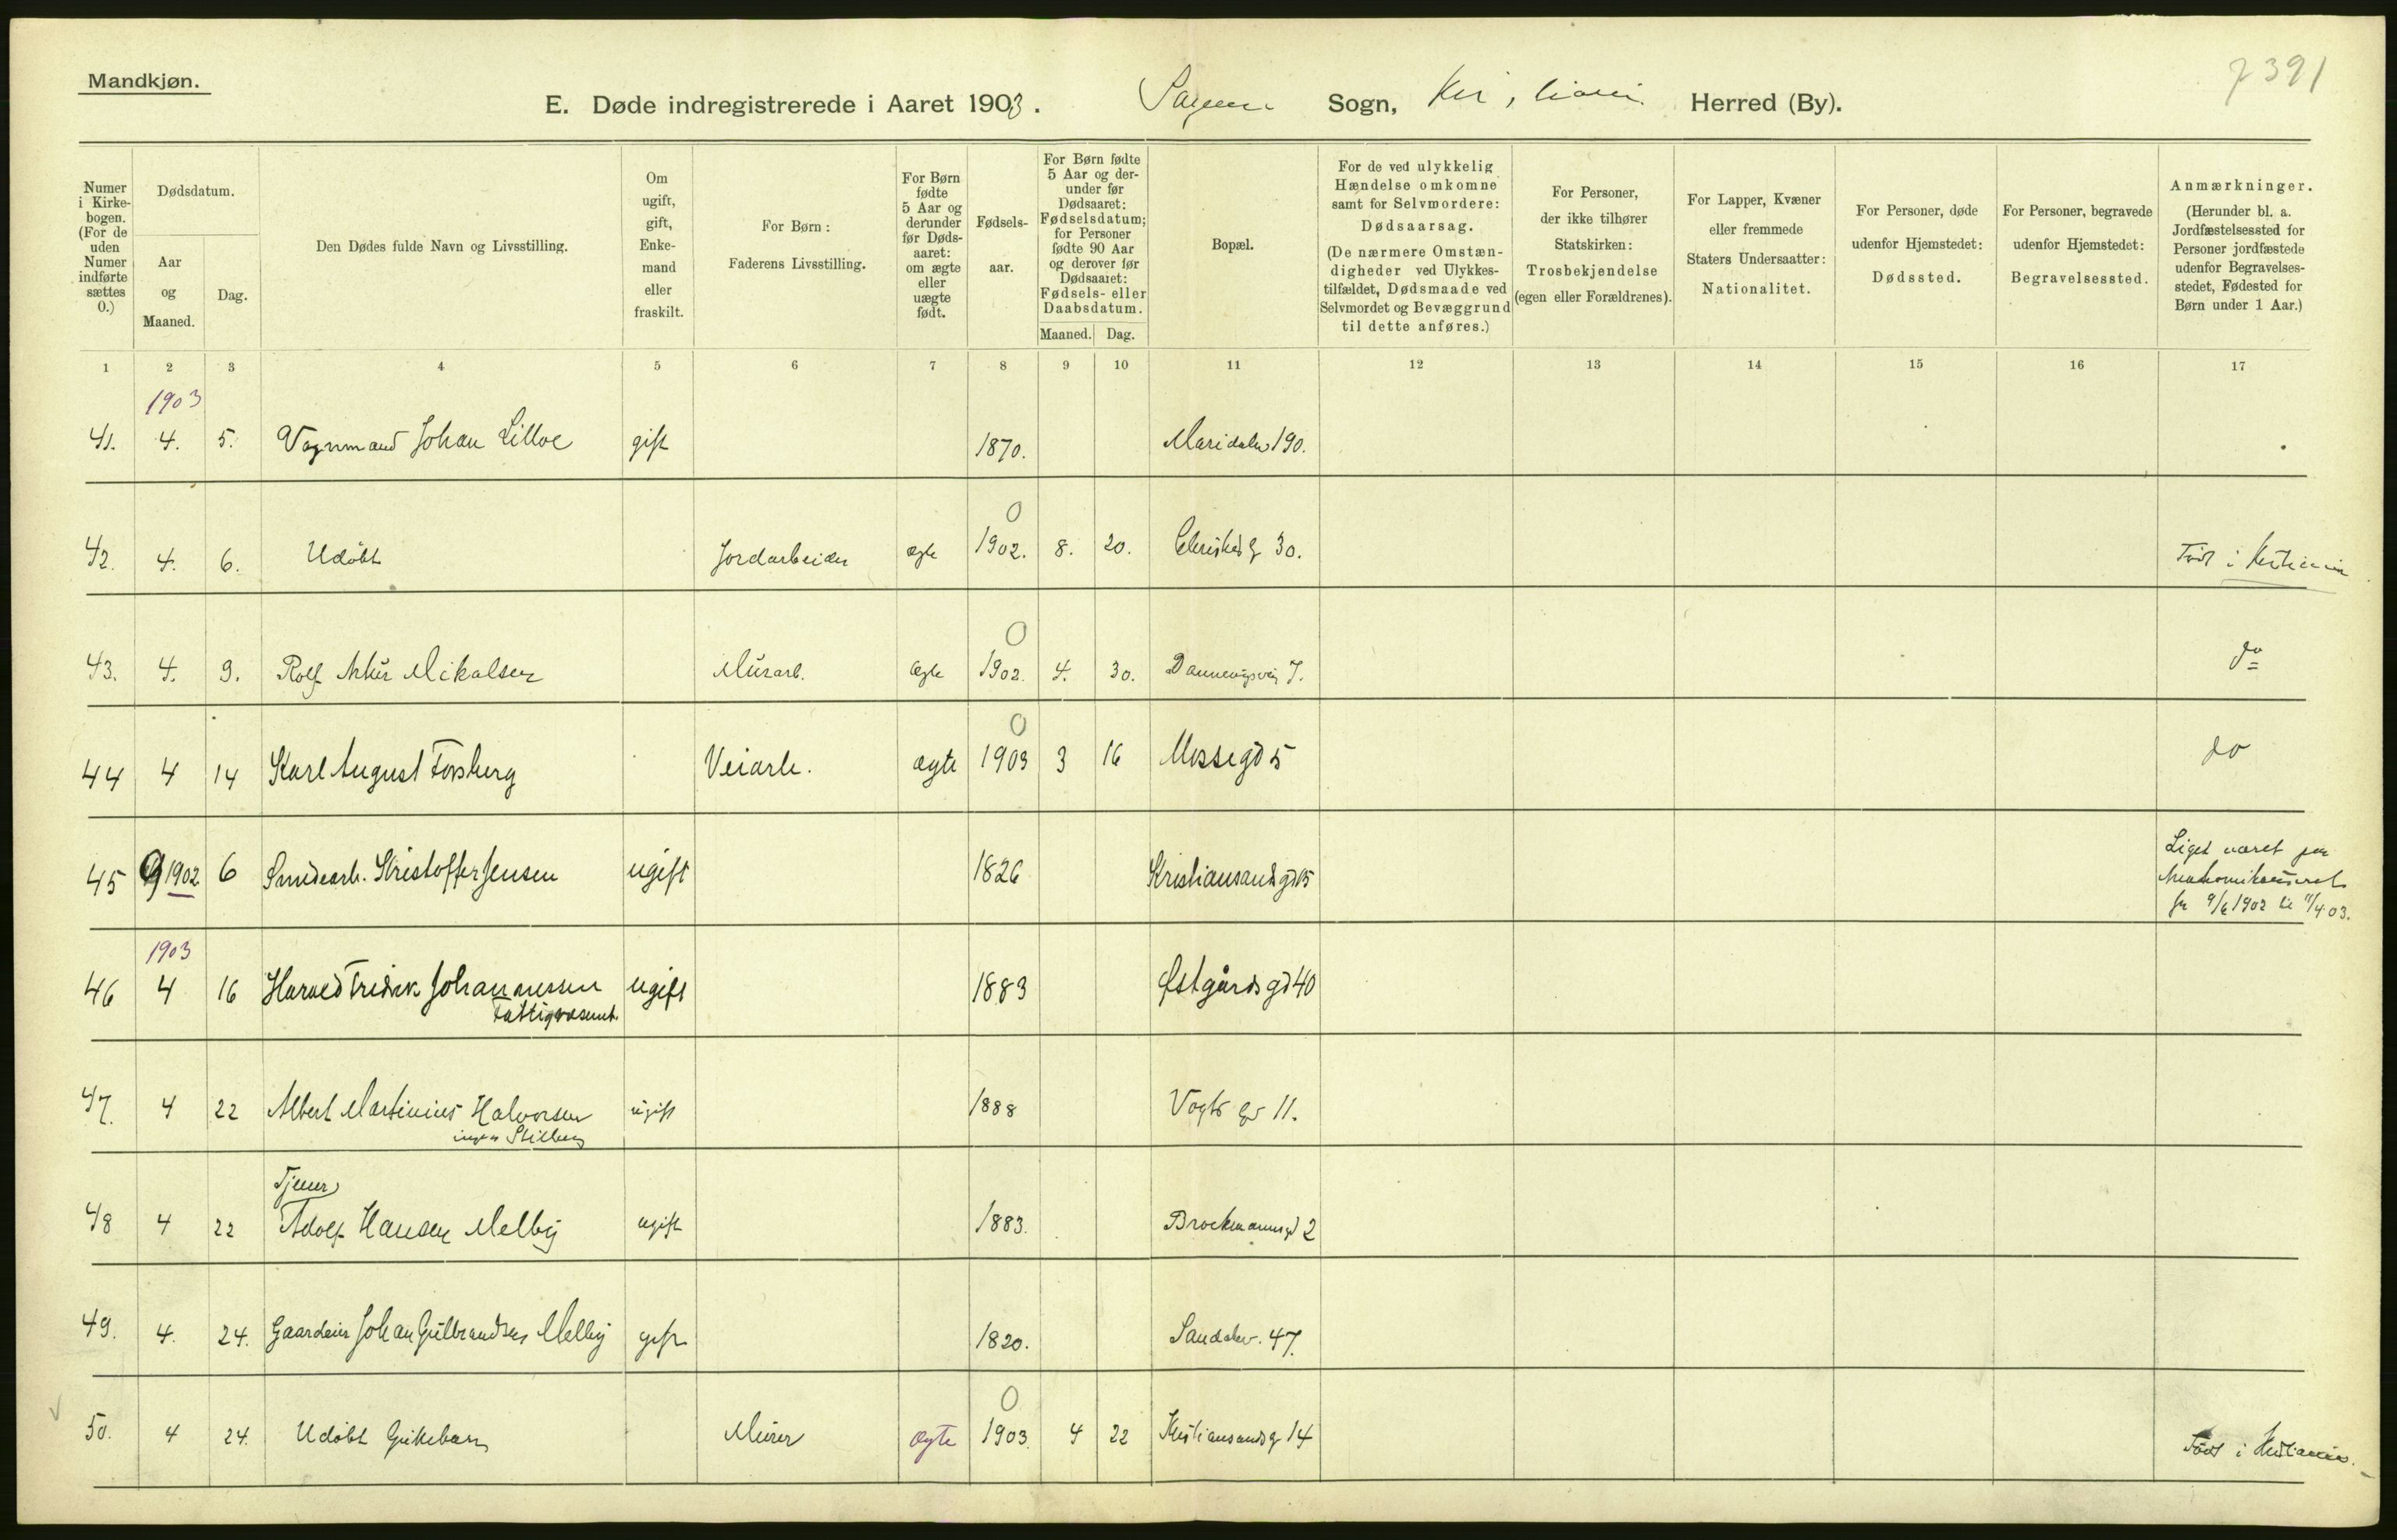 Mandkjøn.
7391
E. Døde indregistrerede i Aaret 1903. Sagene Sogn, Kristiania Herred (By).
Numer i Kirkebogen. (For de uden Numer indførte sættes 0.)
Dødsdatum.
Aar og Maaned.
Dag.
Den Dødes fulde Navn og Livsstilling.
Om ugift, gift, Enkemand eller fraskilt.
For Børn: Faderens Livsstilling.
For Børn fødte 5 Aar og derunder før Dødsaaret: om ægte eller uægte født.
Fødselsaar.
For Børn fødte 5 Aar og derunder før Dødsaaret: Fødselsdatum; for Personer fødte 90 Aar og derover før Dødsaaret: Fødsels- eller Daabsdatum.
Maaned. Dag.
Bopæl.
For de ved ulykkelig Hændelse omkomne samt for Selvmordere: Dødsaarsag. (De nærmere Omstændigheder ved Ulykkestilfældet, Dødsmaade ved Selvmordet og Bevæggrund til dette anføres.)
For Personer, der ikke tilhører Statskirken: Trosbekjendelse (egen eller Forældrenes).
For Lapper, Kvæner eller fremmede Staters Undersaatter: Nationalitet.
For Personer, døde udenfor Hjemstedet: Dødssted.
For Personer, begravede udenfor Hjemstedet: Begravelsessted.
Anmærkninger. (Herunder bl. a. Jordfæstelsessted for Personer jordfæstede udenfor Begravelsesstedet, Fødested for Børn under 1 Aar.)
1 2 3 4 5 6 7 8 9 10 11 12 13 14 15 16 17
1903
41. 4. 5. Vognmand Johan Lilloe gift 1870. Maridalsv 190.
0
42. 4. 6. Udøbt Jordarbeider ægte 1902. 8. 20. 30. Født i Kristiania
0
43. 4. 9. Rolf Artur Mikalsen Murarb. ægte 1902. 4. 30. Dannevigsvei 7. do
0
44 4 14 Karl August Forsberg Veiarb. ægte 1903 3 16 Mossegd 5 do
45 9 1902 6 Smedearb. Kristoffer Jensen ugift 1826 Kristiansandsgd 15 Liget været paa
fra 9/6 1902 til 11/4 03.
1903
46 4 16 Harald Fredrik Johannessen ugift 1883 Østgårds gd 40
Fattigvæsenet.
47. 4 22 Albert Martinius Halvorsen ugift 1888 Vogts gd 11.
ingen Stilling
Tjener
48 4 22 Adolf Hansen Melby ugift 1883. Brockmannsgd 2
49. 4. 24. Gaardeier Johan Gulbrandsen Melby gift 1820. Sandakerv. 47.
0
50. 4 24. Udøbt Gutebarn Murer ægte 1903. 4 22 Kristiansandsg 14 Født i Kristiania.